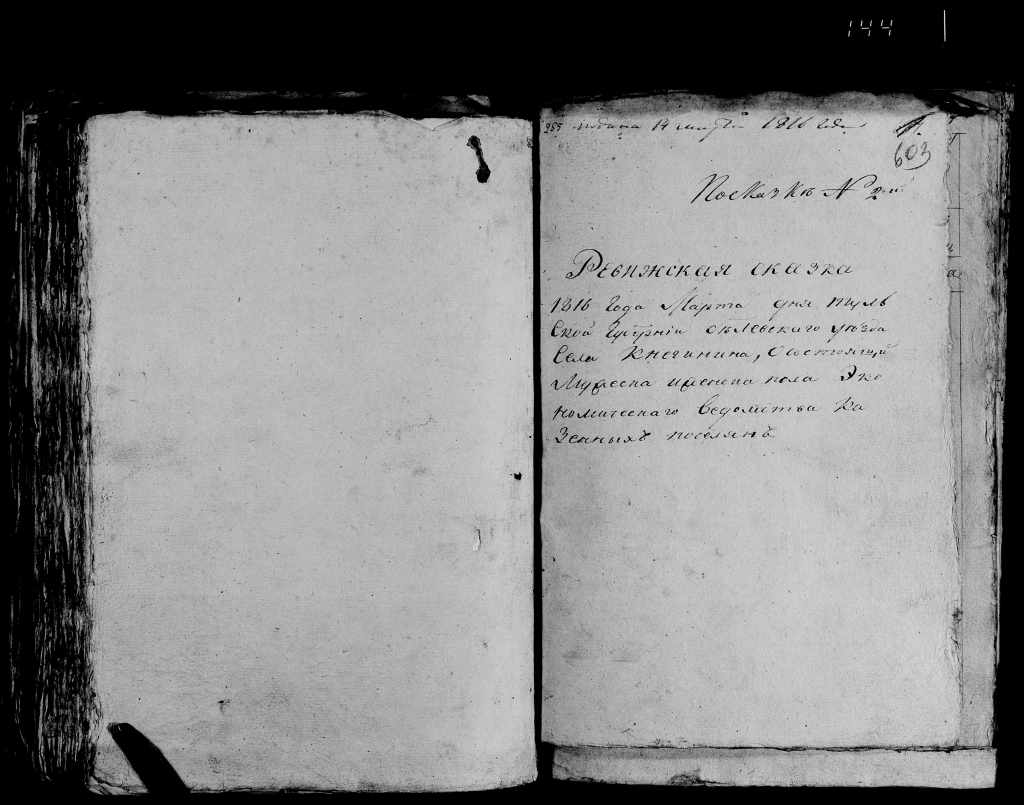 144
255 подана 14 1816 года
603
По сказке № 2й
Ревижская сказка
1816 года Марта дня туль
ской Губернiи бѣлевскаго уѣзда
Села Княгинина, Состоящей
Мужеска иженска пола Эко
номическаго ведомства Ка
зенныхъ поселянъ